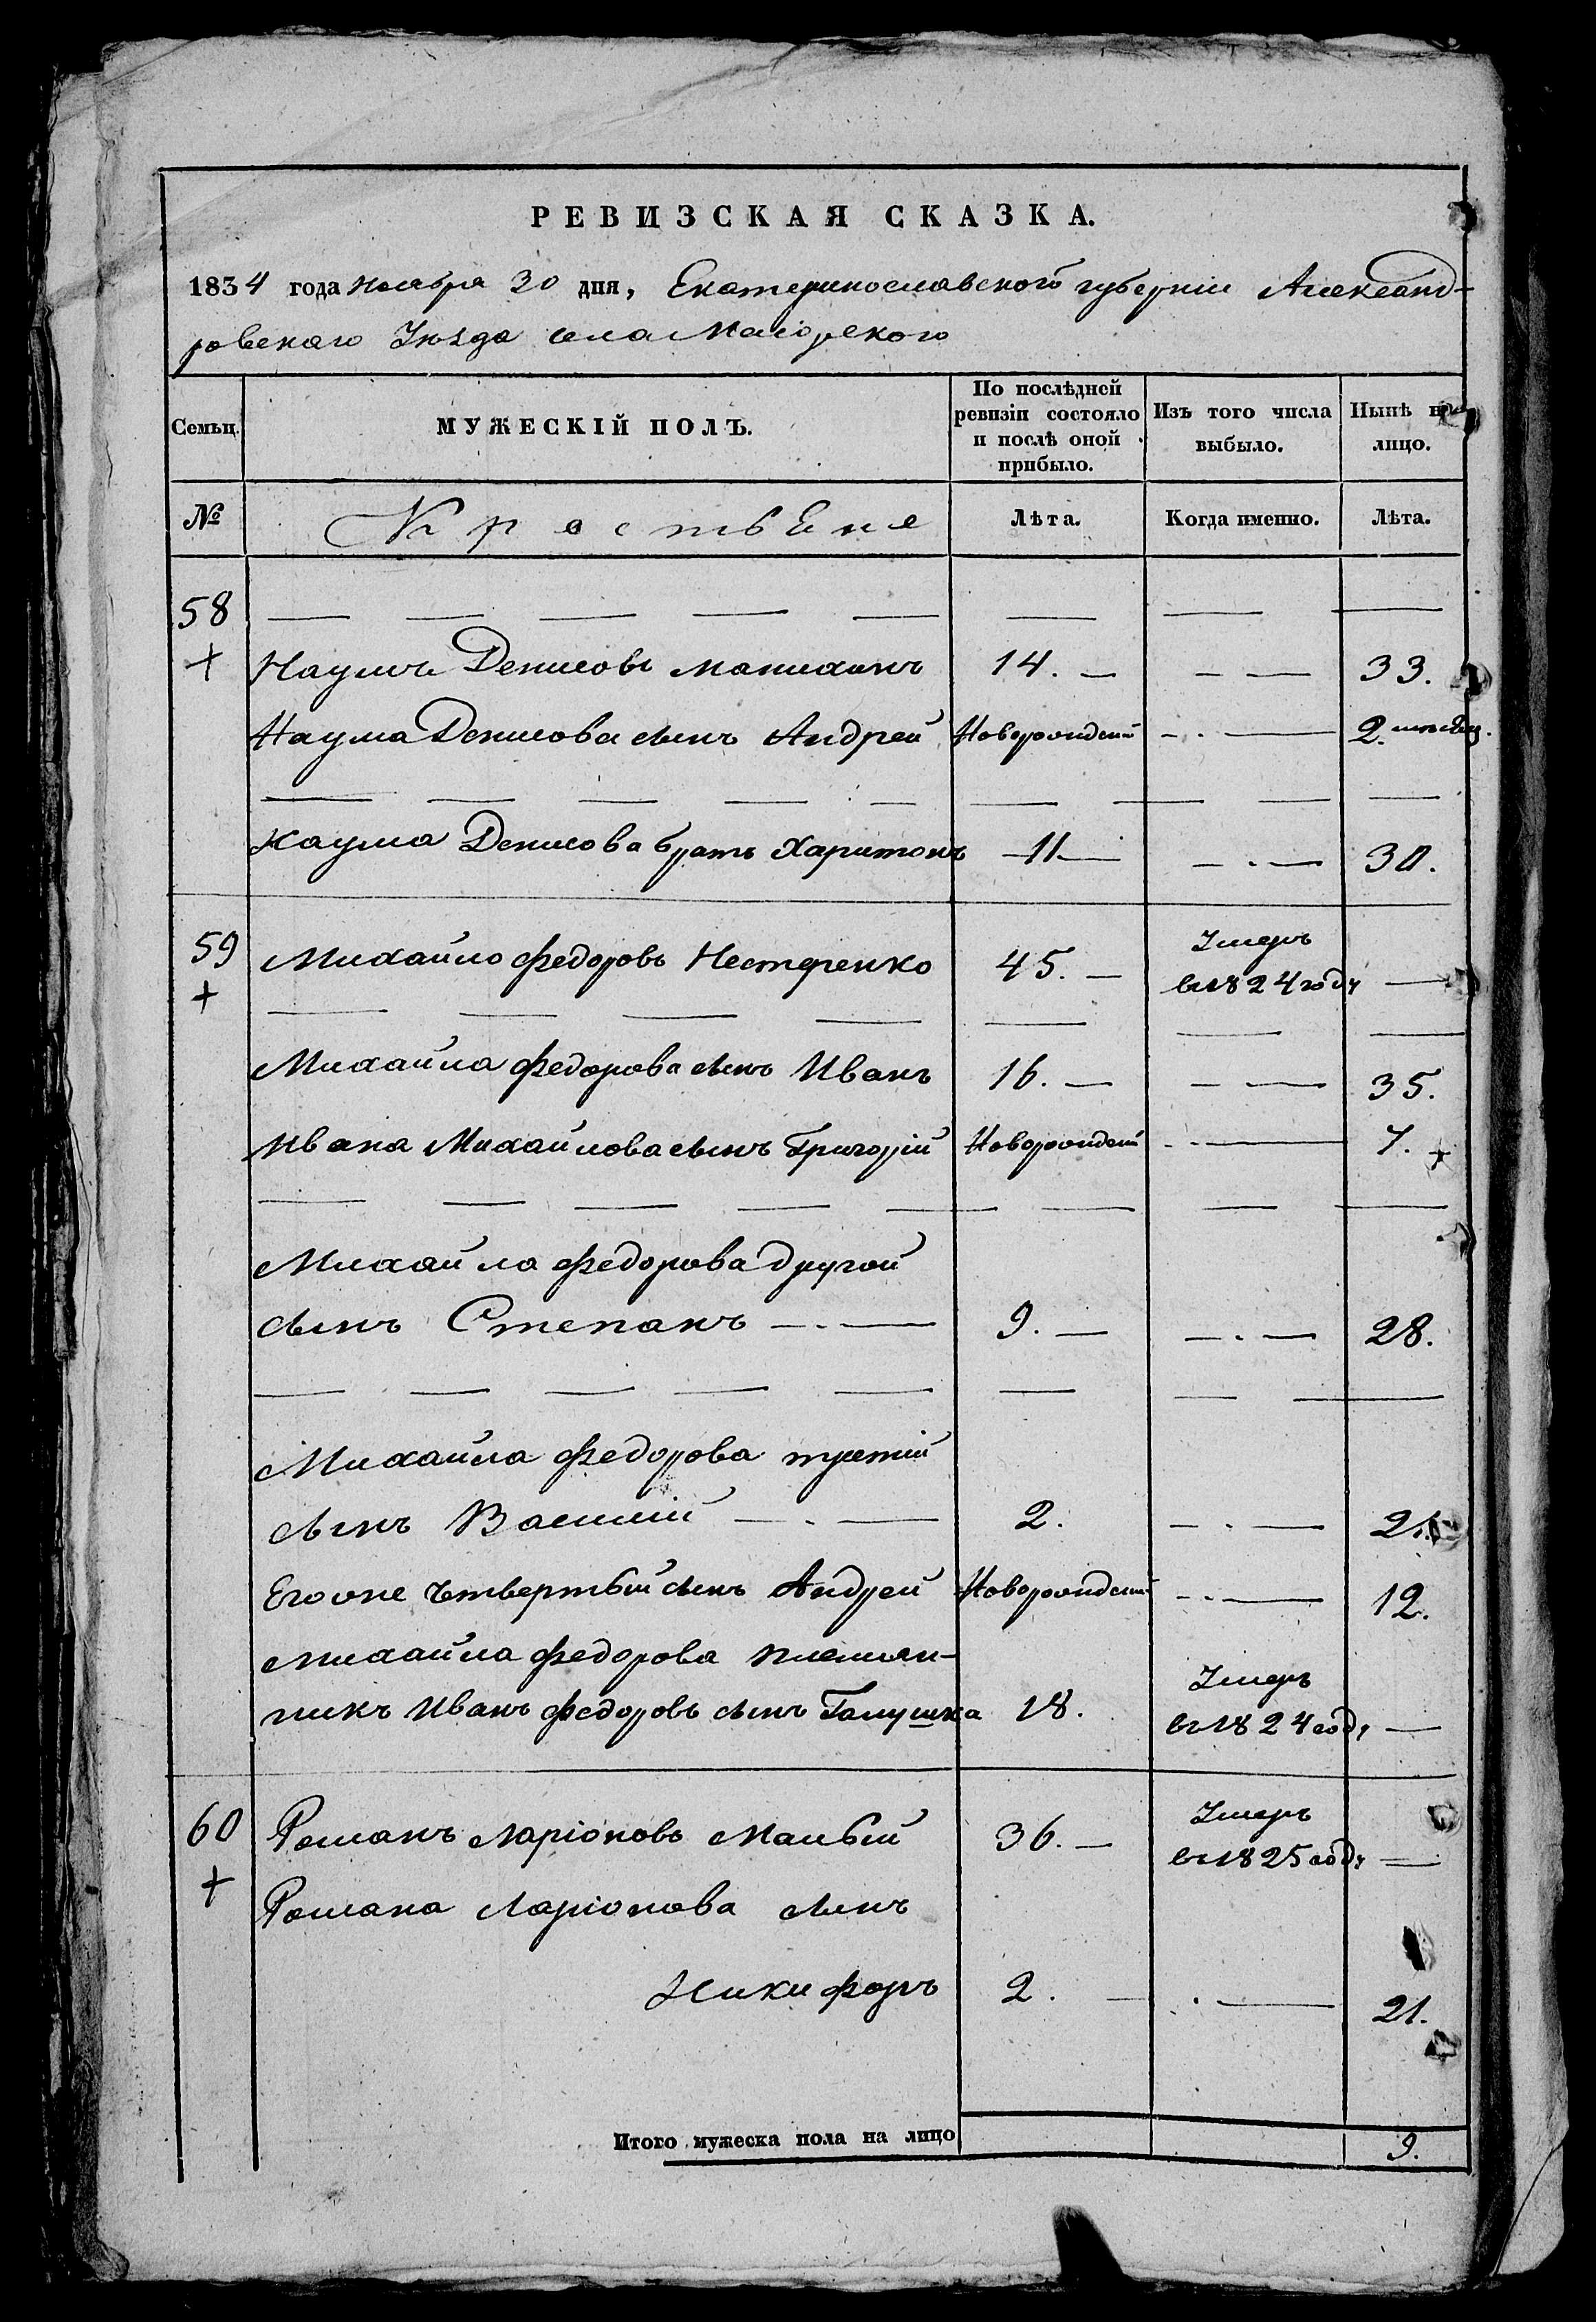 РЕВИЗСКАЯ СКАЗКА.
1834 года ноября 30 дня, Екатеринославской губернiи Александ-
ровскаго Уѣзда села Маiорского
Семьи.
МУЖЕСКIЙ ПОЛЪ.
По послѣдней
ревизiи состояло
и послѣ оной
прибыло.
Изъ того числа
выбыло.
Нынѣ на
лицо.
№ Крестьяне Лѣта. Когда именно. Лѣта.
58
+ Наумъ Денисовъ 14. — — — 33.
Наума Денисова сынъ Андрей Новорожденъ — — 2. мѣсяц.
Наума Денисова братъ Харитонъ — 11 — — — 30.
59 Михайло Федоровъ Нестеренко 45. — Умеръ
+ въ 1824 году —
Михайла Федорова сынъ Иванъ 16. — — — 35.
Ивана Михайлова сынъ Григорiй Новорожденъ — — 7. +
Михайла Федорова другой
сынъ Степанъ — — 9. — — — 28.
Михайла Федорова третiй
сынъ Василiй — — 2. — — 21.
Его же четвертый сынъ Андрей Новорожденъ — — 12.
Михайла Федорова племян-
никъ Иванъ Федоровъ сынъ Галушка 18. Умеръ
въ 1824 году —
60 Романъ Ларiоновъ Малый 36. — Умеръ
+ въ 1825 году —
Романа Ларiонова сынъ
Никифоръ 2. — — 21.
Итого мужеска пола на лицо 9.